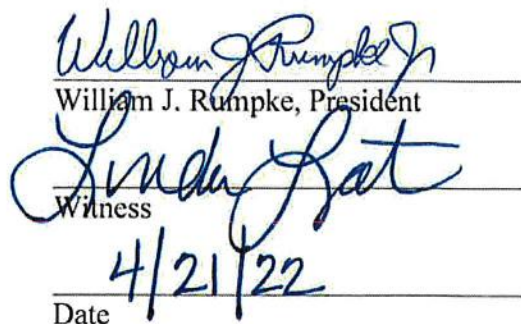 William J Rumpke Jr
William J. Rumpke, President
Linda
Witness
4/21/22
Date